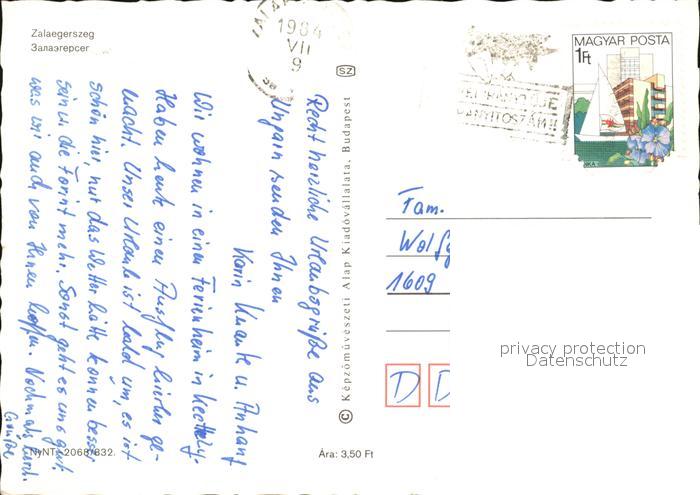 Zalaegerszeg
Залаэгерсег
1984
VII
9
SZ
MAGYAR POSTA
1Ft
Recht herzliche Urlaubsgrüße aus
Ungarn senden Ihnen
Karin Knaute u. Anhang
Wir wohnen in einem Ferienheim in Keszthely.
Haben heute einen Ausflug hierher ge-
macht. Unser Urlaub ist bald um, es ist
schön hier, nur das Wetter hätte können besser
sein u. die Forint mehr. Sonst geht es uns gut,
was wir auch von Ihnen hoffen. Nochmals herzl.
Grüße
© Képzőművészeti Alap Kiadóvállalata, Budapest
Fam.
Wolfg
1609
D D
privacy protection
Datenschutz
NyNT—2068/832.
Ára: 3,50 Ft